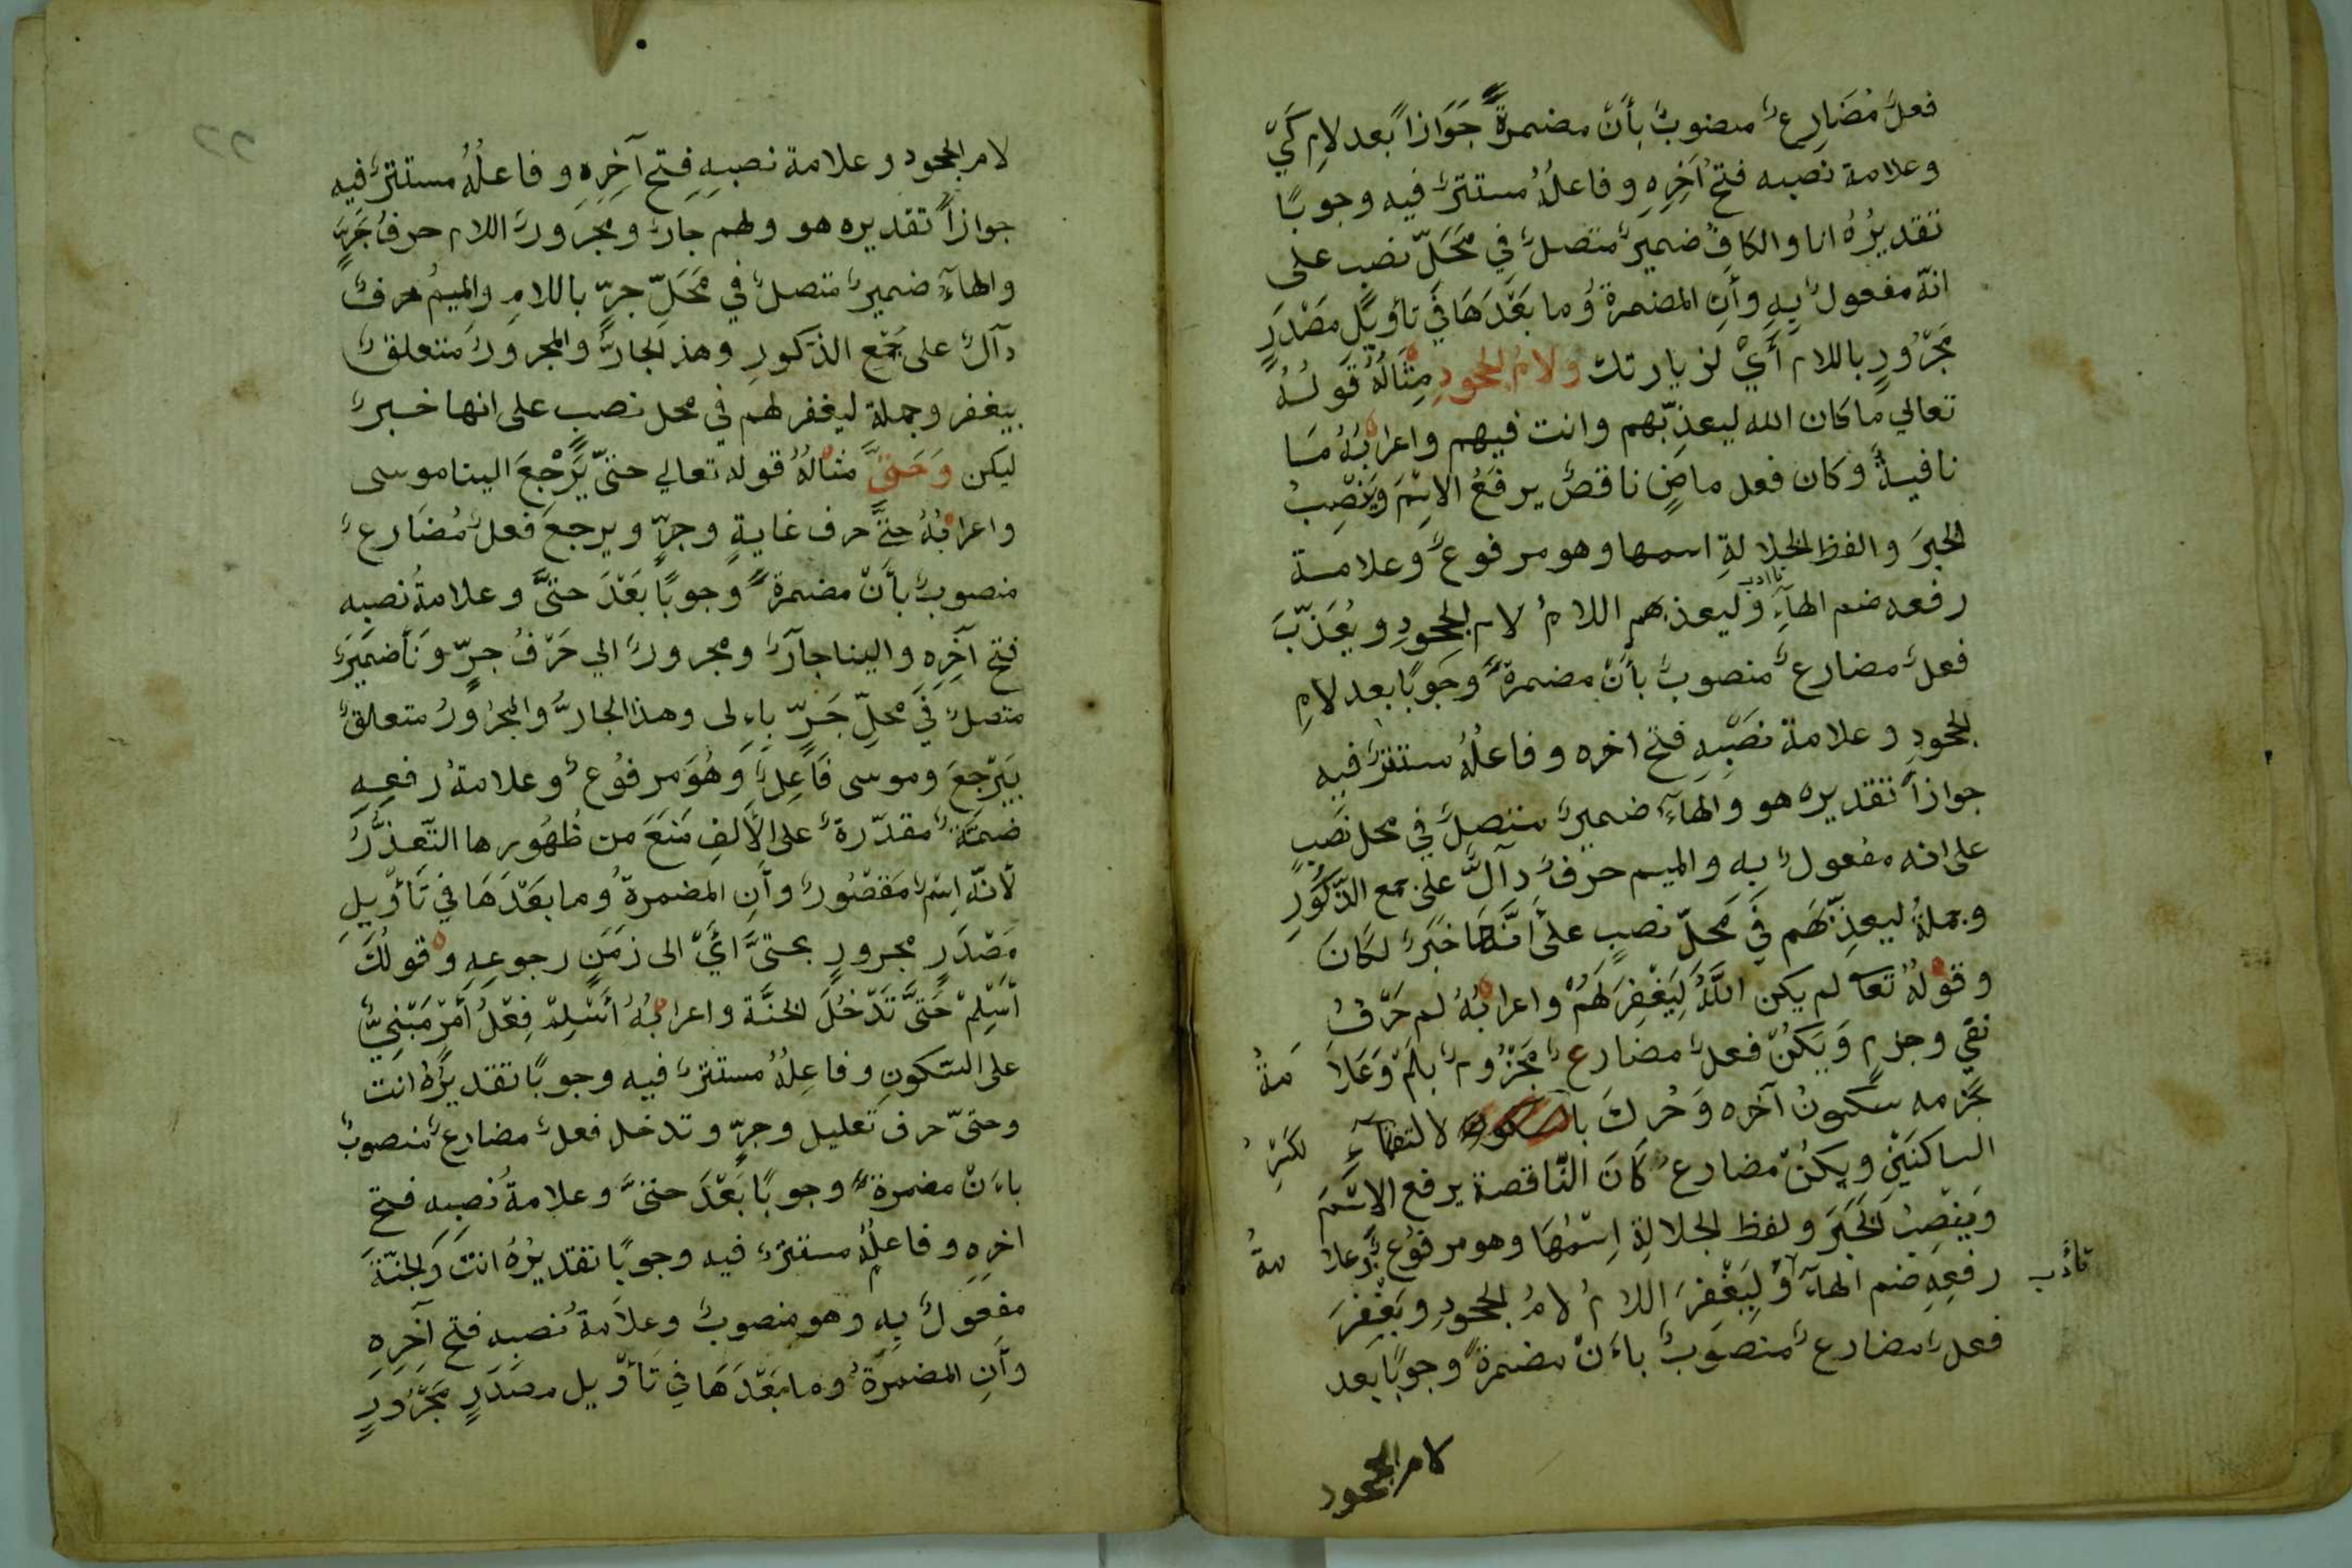 فعلٌ مُضَارِعٌ منصوبٌ بِأَنْ مضمرةً جَوَازاً بعد لامِ كَيْ
وعلامة نصبه فتحُ آخِرِهِ وفاعلُهُ مستترٌ فيه وجوبًا
تقديرُهُ انا والكافُ ضميرٌ متصلٌ فِي مَحَلِّ نصبٍ على
انّه مفعولٌ بِهِ وأَنِ المضمرةُ وما بَعْدَهَا فِي تأوِيلِ مَصْدَرٍ
مَجْرُورٍ باللام أَيْ لزيارتك ولامُ الجحودِ مِثَالُهُ قَوْلُهُ
تعالي ما كان الله ليعذِّبهم وانت فيهم واعرابُهُ مَا
نافيةٌ وكان فعل ماضٍ ناقصٌ يرفَعُ الاِسْمَ وَيَنْصِبُ
الخبرَ والفظ الجلالةِ اسمها وهو مرفوعٌ وعلامة
رفعه ضم الهآءِ وليعذبهم اللامُ لام الجحودِ ويُعَذِّبَ
فعلٌ مضارعٌ منصوبٌ بأَنْ مضمرةً وجَوبًا بعد لامِ
الجحودِ وعلامة نصْبِهِ فتح اخره وفاعلُهُ مستترٌ فيه
جوازاً تقديره هو والهآءُ ضميرٌ متصلٌ فِي محل نصبٍ
على انه مفعولٌ به والميم حرفٌ دآلٌّ على جمع الذّكُورِ
وجملةُ ليعذِّبَهم فِي مَحَلِّ نصبٍ عَلَى أَنَّهَا خَبَرٌ لكَانَ
وقولُهُ تعا لم يكن اللَّهُ لِيَغْفِرَ لَهُمْ واعرابُهُ لم حَرْفُ
نفي وجزمٍ وَيَكُنْ فعلٌ مضارعٌ مَجْزُومٌ بِلَمْ وَعَلَا مَةُ
جزمه سكونُ آخره وَحُركَ بالسكون لالتقآءِ لكَسْرِ
الساكنَيْنِ ويكنْ مضارعُ كَانَ النّاقصة يرفع الاِسْمَ
وَيَنْصِبُ الخَبَرَ ولفظ الجلالةِ اِسْمُهَا وهو مرفوعٌ وعلا مةُ
رفعِهِ ضم الهآءِ وَلِيَغْفِرَ اللامُ لامُ الجحودِ ويَغْفِرَ تأدب
فعلٌ مضارعٌ منصوبٌ باءَنْ مضمرةً وجوبًا بعد
لام الجحود
لام الجحود وعلامة نصبِهِ فتح آخِرِهِ وفاعلُهُ مستترٌ فيه
جوازاً تقديره هو ولهم جارٌ ومجرورٌ اللام حرفُ جَرٍّ
والهآءُ ضميرٌ متصلٌ فِي مَحَلِّ جرٍّ باللامِ والميمُ حرفٌ
دآلٌ على جَمْعِ الذّكورِ وهذ الجارُّ والمجرورُ متعلقٌ
بيغفر وجملة ليغفر لهم في محل نصبٍ على انها خبرٌ
ليكن وَحَتَّى مثالُهُ قوله تعالي حتّى يَرْجِعَ الينا موسى
واعرابُهُ حتَّى حرف غايةٍ وجرٍّ ويرجعَ فعلٌ مُضَارعٌ
منصوبٌ بأَنْ مضمرةً وجوبًا بَعْدَ حتَّى وعلامةُ نصبه
فتح آخِرِهِ والينا جآرٌ ومجرورٌ الي حَرْفُ جرٍّ ونَا ضميرٌ
متصلٌ فِي محلِّ جَرٍّ باءِلى وهذا الجارُّ والمجرُورُ متعلقٌ
بِيَرْجِعَ وموسى فَاعِلٌ وَهُوَ مرفُوعٌ وعلامةُ رفعِهِ
ضمّةٌ مقدّرةٌ على الأَلِفِ مَنَعَ من ظُهُورِها التّعذُّرُ
لأنّه اِسْمٌ مَقْصُورٌ وأَنِ المضمرةُ وما بَعْدَهَا فِي تَأْوِيلِ
مَصْدَرٍ مجرورٍ بحتىَّ أَيْ الى زمَنِ رجوعِهِ وقولُكَ
أَسْلِمْ حَتَّى تَدْخُلَ الجَنَّةَ واعرابُهُ أَسْلِمْ فِعْلُ أَمْرٍ مَبْنِيٌّ
على السّكونِ وفاعِلُهُ مستترٌ فيه وجوبًا تقديرُهُ انت
وحتىّ حرف تعليل وجرٍّ وتدخل فعلٌ مضارعٌ منصوبٌ
باءَنْ مضمرةً وجوبًا بَعْدَ حتىَّ وعلامةُ نصبِهِ فتح
اخرِهِ وفاعلُهُ مستترٌ فيه وجوبًا تقديرُهُ انتَ وَالجنّةَ
مفعولٌ بِهِ وهو منصوبٌ وعلَامةُ نصبِهِ فتح آخِرِهِ
وأَنِ المضمرَةُ وما بَعْدَهَا فِي تَأْوِيل مصدَرٍ مَجْرُورٍ